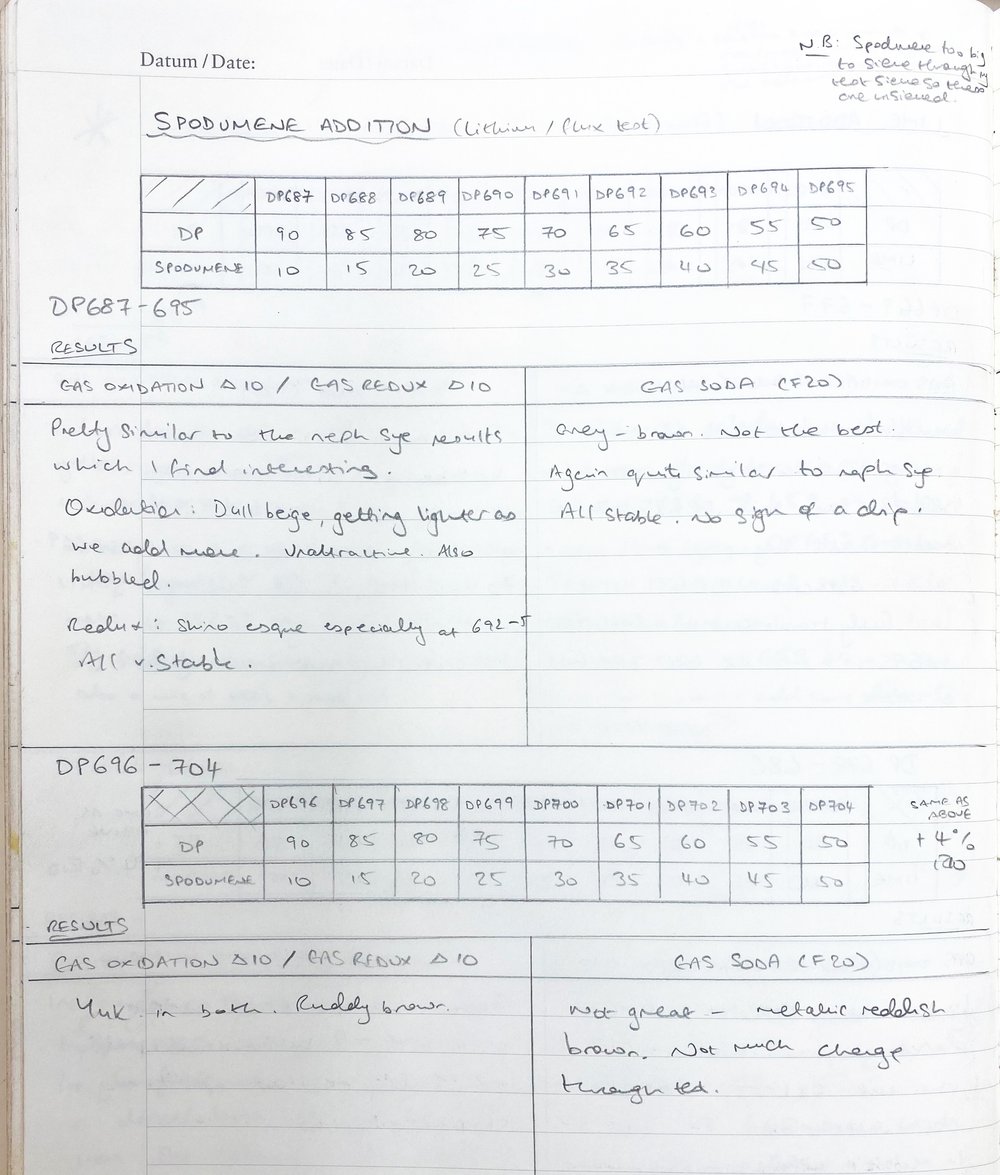 N.B: Spodumene too big
to sieve through my
test sieve so these
are unsieved.
Datum / Date:
SPODUMENE ADDITION (Lithium / flux test)
DP687 DP688 DP689 DP690 DP691 DP692 DP693 DP694 DP695
DP 90 85 80 75 70 65 60 55 50
SPODUMENE 10 15 20 25 30 35 40 45 50
DP687-695
RESULTS
GAS OXIDATION Δ10 / GAS REDUX Δ10
Pretty similar to the neph sye results
which I find interesting.
Oxidation: Dull beige, getting lighter as
we add more. Unattractive. Also
bubbled.
Redux: Shino esque especially at 692-5
All v. stable.
GAS SODA (F20)
Grey-brown. Not the best.
Again quite similar to neph sye.
All stable. No sign of a drip.
DP696 - 704
DP696 DP697 DP698 DP699 DP700 DP701 DP702 DP703 DP704
DP 90 85 80 75 70 65 60 55 50
SPODUMENE 10 15 20 25 30 35 40 45 50
SAME AS
ABOVE
+ 4%
RESULTS
GAS OXIDATION Δ10 / GAS REDUX Δ10
Yuk in both. Ruddy brown.
GAS SODA (F20)
Not great - metallic reddish
brown. Not much change
through test.